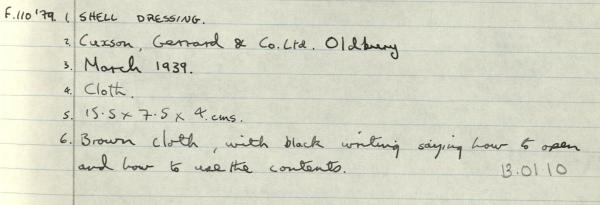 F.110'79. 1. SHELL DRESSING.
2. Cuxson, Gerrard & Co. Ltd. Oldbury
3. March 1939.
4. Cloth.
5. 15.5 x 7.5 x 4. cms.
6. Brown cloth, with black writing saying how to open
and how to use the contents. 13.01.10